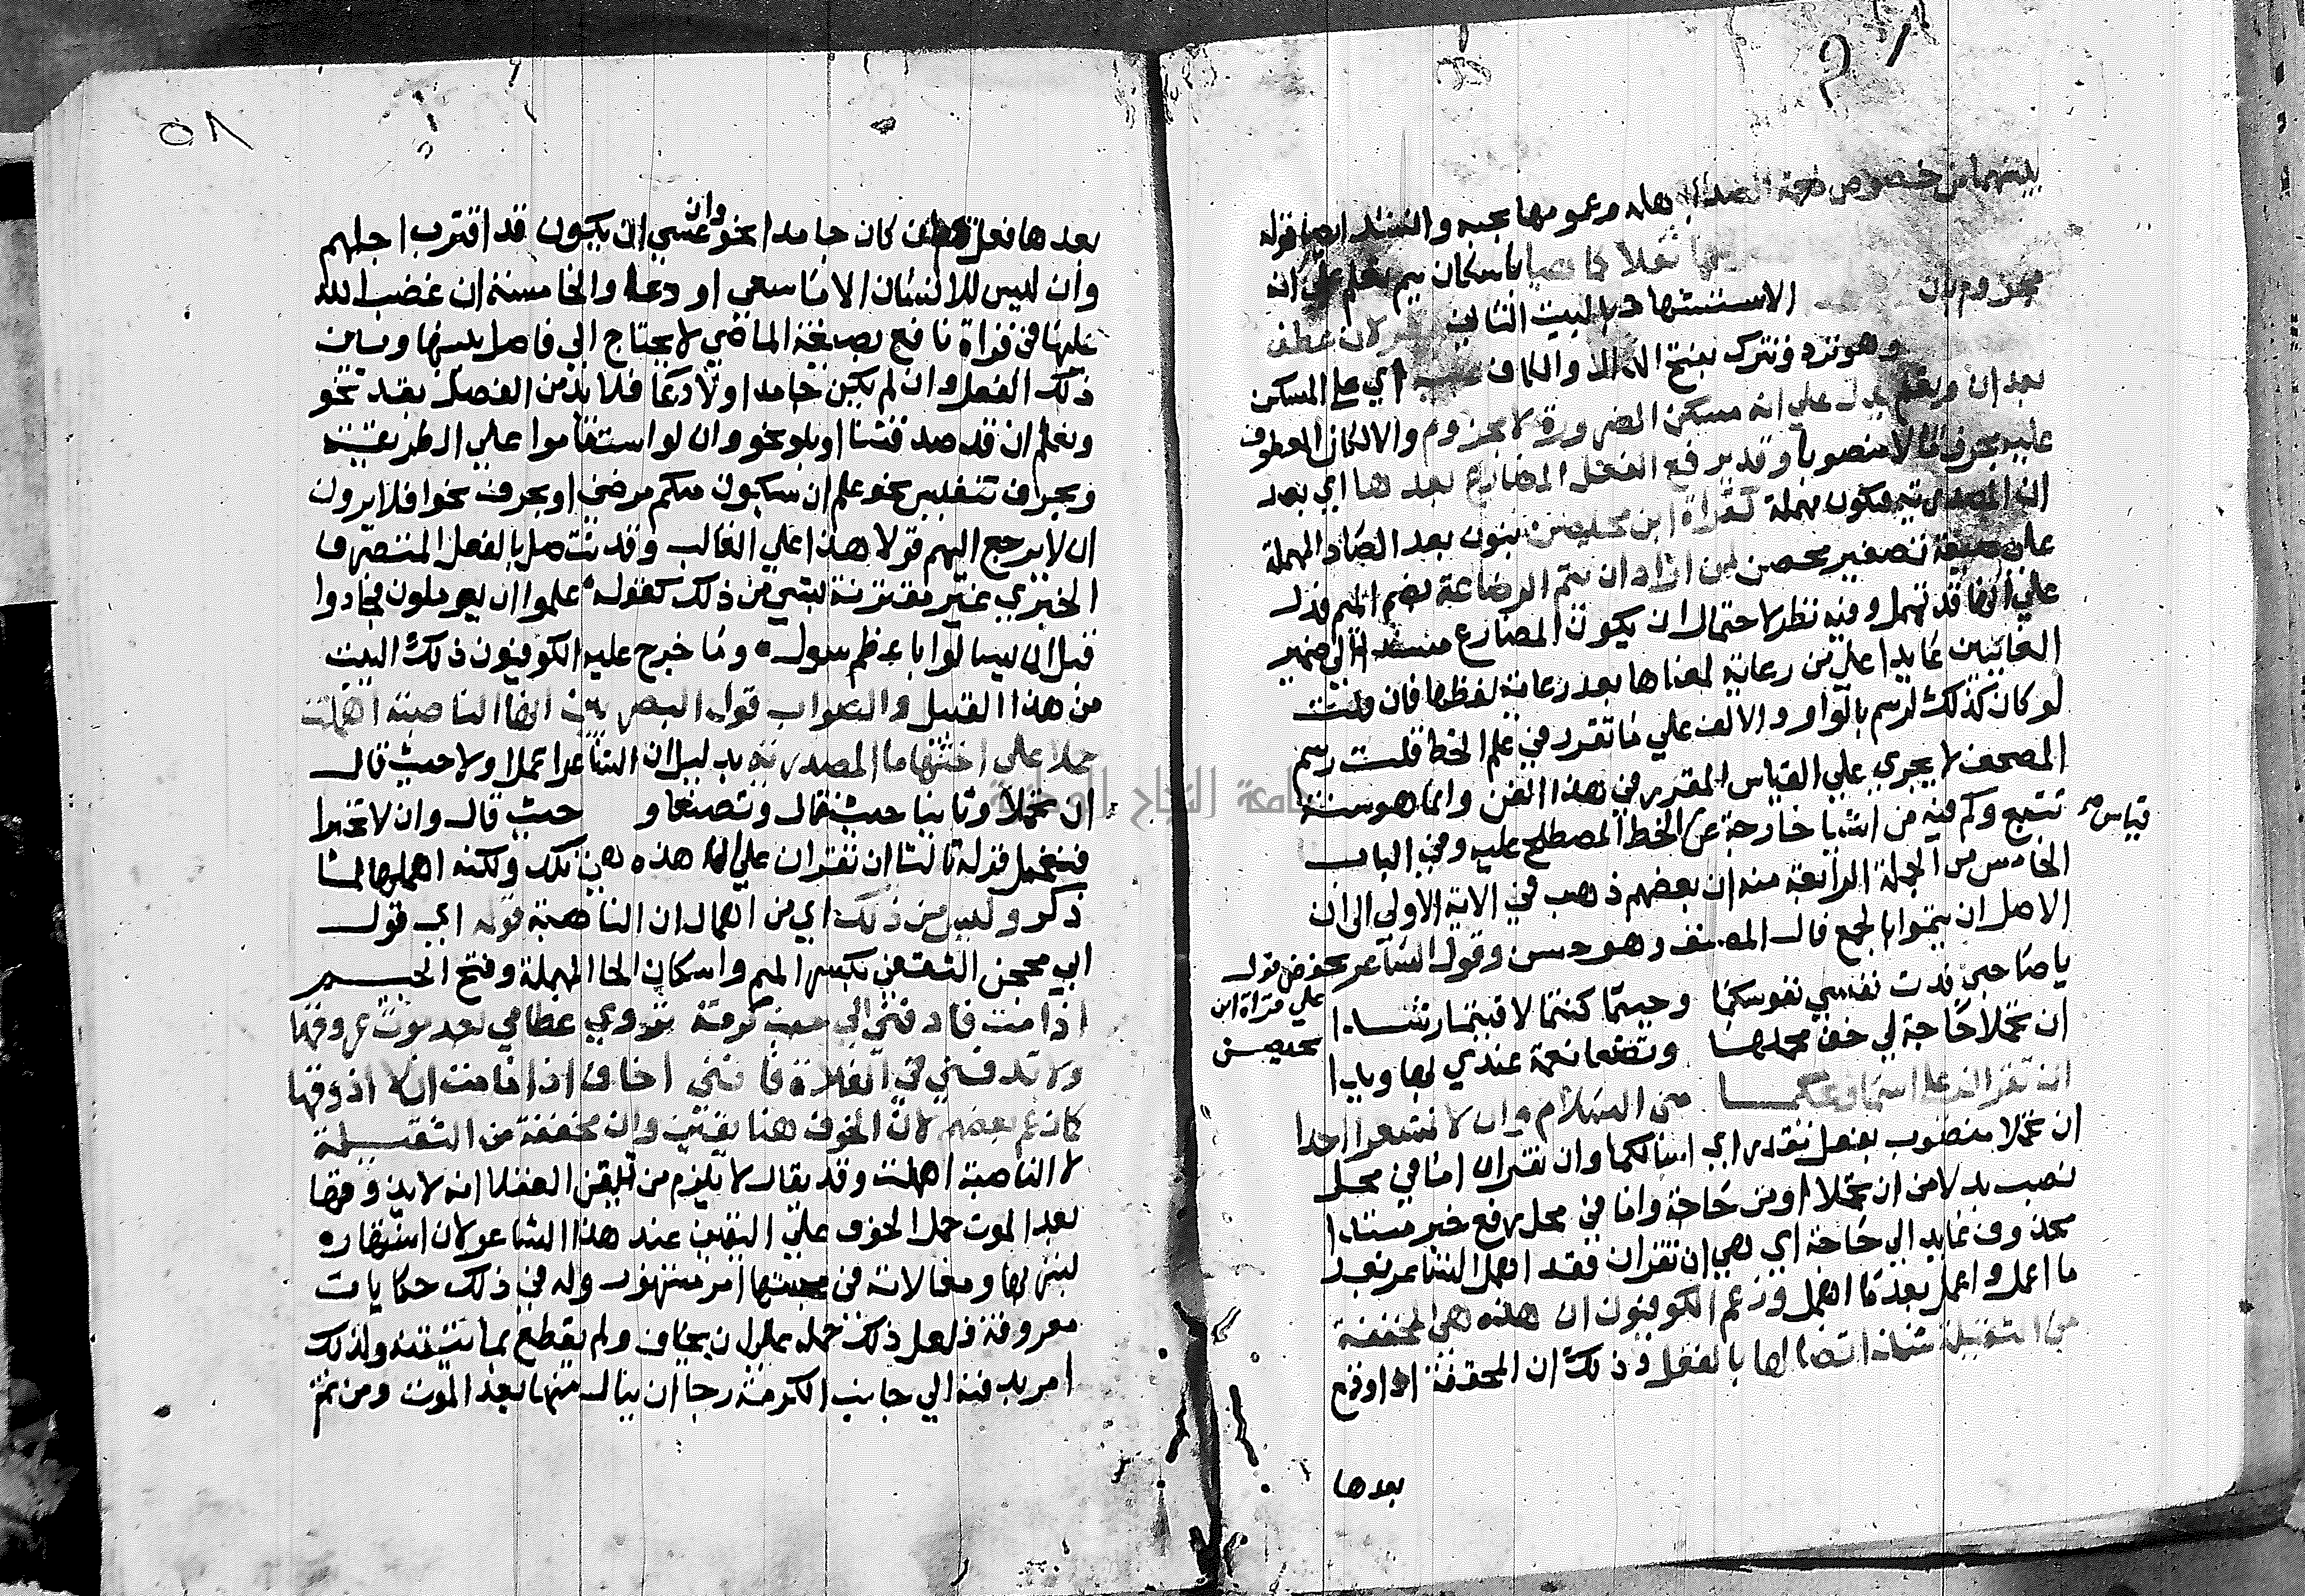 بينهما من خصوص وعمومها بجبه وانشد ايضا قوله
باسكان ميم تعلم على انه
مجزوم بان الاستشهاد بالبيت الثاني لان عطف
وهو فترد وتترك بفتح الدال والكاف اي على المسكن
بعد ان وتعلم يدل على انه مسكن للضرورة لا مجزوم والا لكان المعطوف
عليه مجزوما لا منصوبا وقد يرفع الفعل المضارع بعدها اي بعد
ان المصدرية فتكون مهملة كقراة ابن محيصن بنون بعد الصاد المهملة
على صيغة تصغير محصن لمن اراد ان يتم الرضاعة بضم الميم فدل
على انها قد تهمل وفيه نظر لاحتمال ان يكون المضارع مسندا الى ضمير
الغايبين عايدا على من رعاية لمعناها بعد رعاية لفظها فان قلت
لو كان كذلك لرسم بالواو والالف على ما تقرر في علم الخط قلت رسم
المصحف لا يجري على القياس المقرر في هذا الفن وانما هو سنة
تتبع وكم فيه من اشيا خارجة عن الخط المصطلح عليه وفي الباب
قياس
الخامس من الجملة الرابعة منه ان بعضهم ذهب في الاية الاولى الى ان
الاصل ان يتموا بالجمع قال المصنف وهو حسن وقول الشاعر بخفض قول
على قراة ابن
محيصن
يا صاحبي فدت نفسي نفوسكما وحيثما كنتما لاقيتما رشدا
ان تحملا حاجة لي خف محملها وتصنعا نعمة عندي بها ويدا
ان تقران على اسما ويحكما مني السلام وان لا تشعرا احدا
ان تحملا منصوب بفعل مقدر اي اسالكما وان تقران اما في محل
نصب بدلا من ان تحملا او من حاجة واما في محل رفع خبر مبتدا
محذوف عايد الى حاجة اي هي ان تقران فقد اهمل الشاعر بعد
ما اعمل واعمل بعد ما اهمل وزعم الكوفيون ان هذه هي المخففة
من الثقيلة شذ اتصالها بالفعل وذلك ان المخففة اذا وقع
بعدها
بعدها فعل فان كان جامدا نحو وان عسى ان يكون قد اقترب اجلهم
وان ليس للانسان الا ما سعى او دعا والخامسة ان غضب الله
عليها في قراة نافع بصيغة الماضي لا يحتاج الى فاصل بينها وبين
ذلك الفعل وان لم يكن جامدا ولا دعا فلا بد من الفصل بقد نحو
ونعلم ان قد صدقتنا او بلو نحو وان لو استقاموا على الطريقة
وبحرف تنفيس نحو علم ان سيكون منكم مرضى او بحرف نحو افلا يرون
ان لا يرجع اليهم قولا هذا على الغالب وقد تتصل بالفعل المتصرف
الخبري غير مقترنة بشي من ذلك كقوله علموا ان يوملون فجادوا
قبل ان يسالوا باعظم سول وما خرج عليه الكوفيون ذلك البيت
من هذا القبيل والصواب قول البصريين انها الناصبة اهملت
حملا على اختها ما المصدرية بدليل ان الشاعر اعمل اولا حيث قال
ان تحملا وثانيا حيث قال وتصنعا و حيث قال وان لا تخبرا
فتحمل قوله ثالثا ان تقران على انها هذه هي تلك ولكنه اهملها لما
ذكر وليس من ذلك اي من اهمال ان الناصبة قوله اي قول
ابي محجن الثقفي بكسر الميم واسكان الحا المهملة وفتح الجيم
اذا مت فادفني الى جنب كرمة تروي عظامي بعد موتي عروقها
ولا تدفنني في الفلاة فانني اخاف اذا ما مت ان لا اذوقها
كما زعم بعضهم لان الخوف هنا يقين وان مخففة من الثقيلة
لا الناصبة اهملت وقد يقال لا يلزم من تيقن العقلا انه لا يذوقها
بعد الموت حمل الخوف على اليقين عند هذا الشاعر لان اشتهاره
لشربها ومغالاته في محبتها امر مشهور وله في ذلك حكايات
معروفة فلعل ذلك حمله على ان يخاف ولم يقطع بما تيقنه ولذلك
امر بدفنه الى جانب الكرمة رجا ان ينال منها بعد الموت ومن ثم
٥٨
جامعة النجاح الوطنية